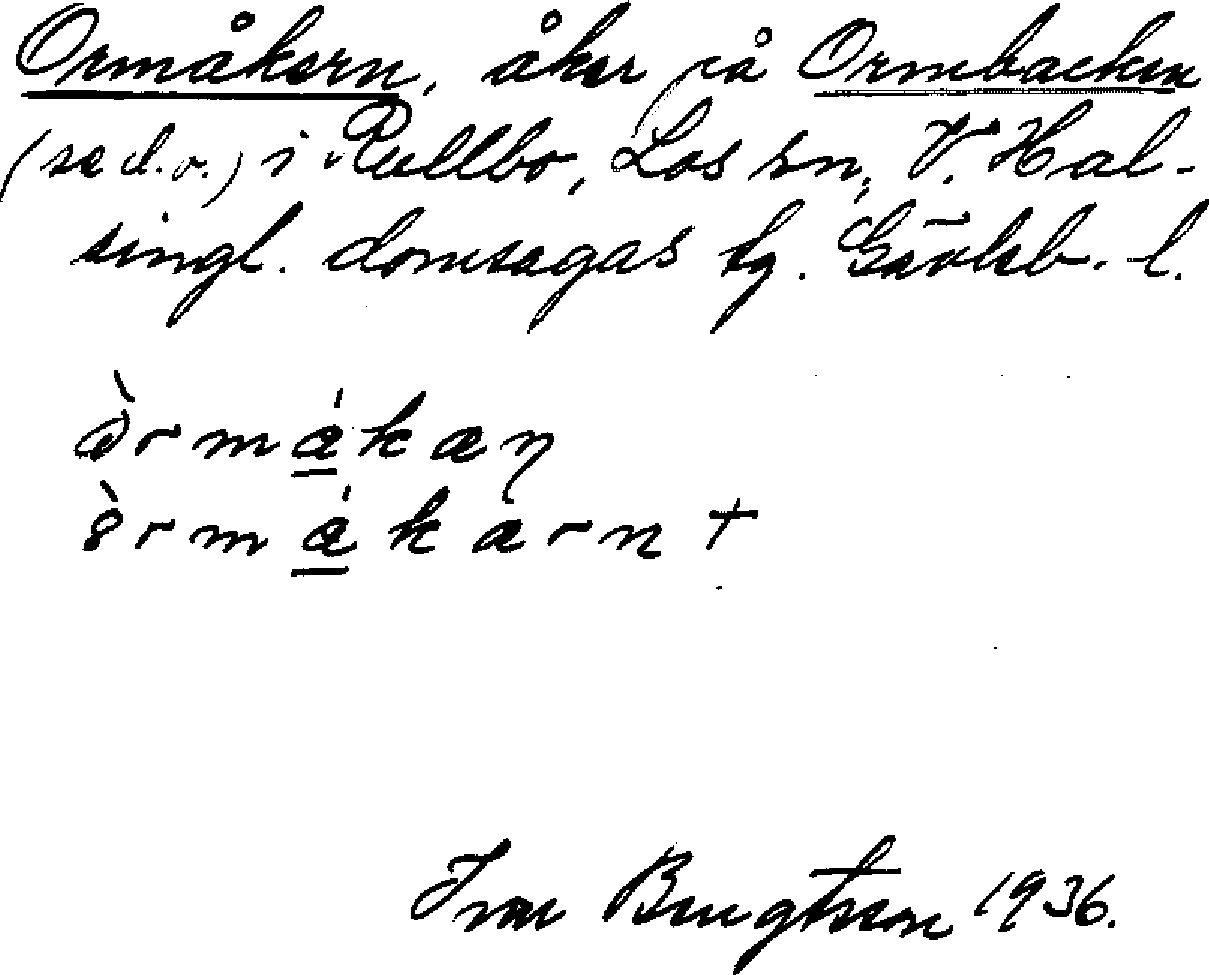 Ormåkern, åker på Ormbacken
(se d.o.) i Rullbo, Los sn, V. Häl-
singl. domsagas tg. Gävleb. l.
òrmá̱kæn̥
òrmá̱karn +
Ivar Bengtsson 1936.